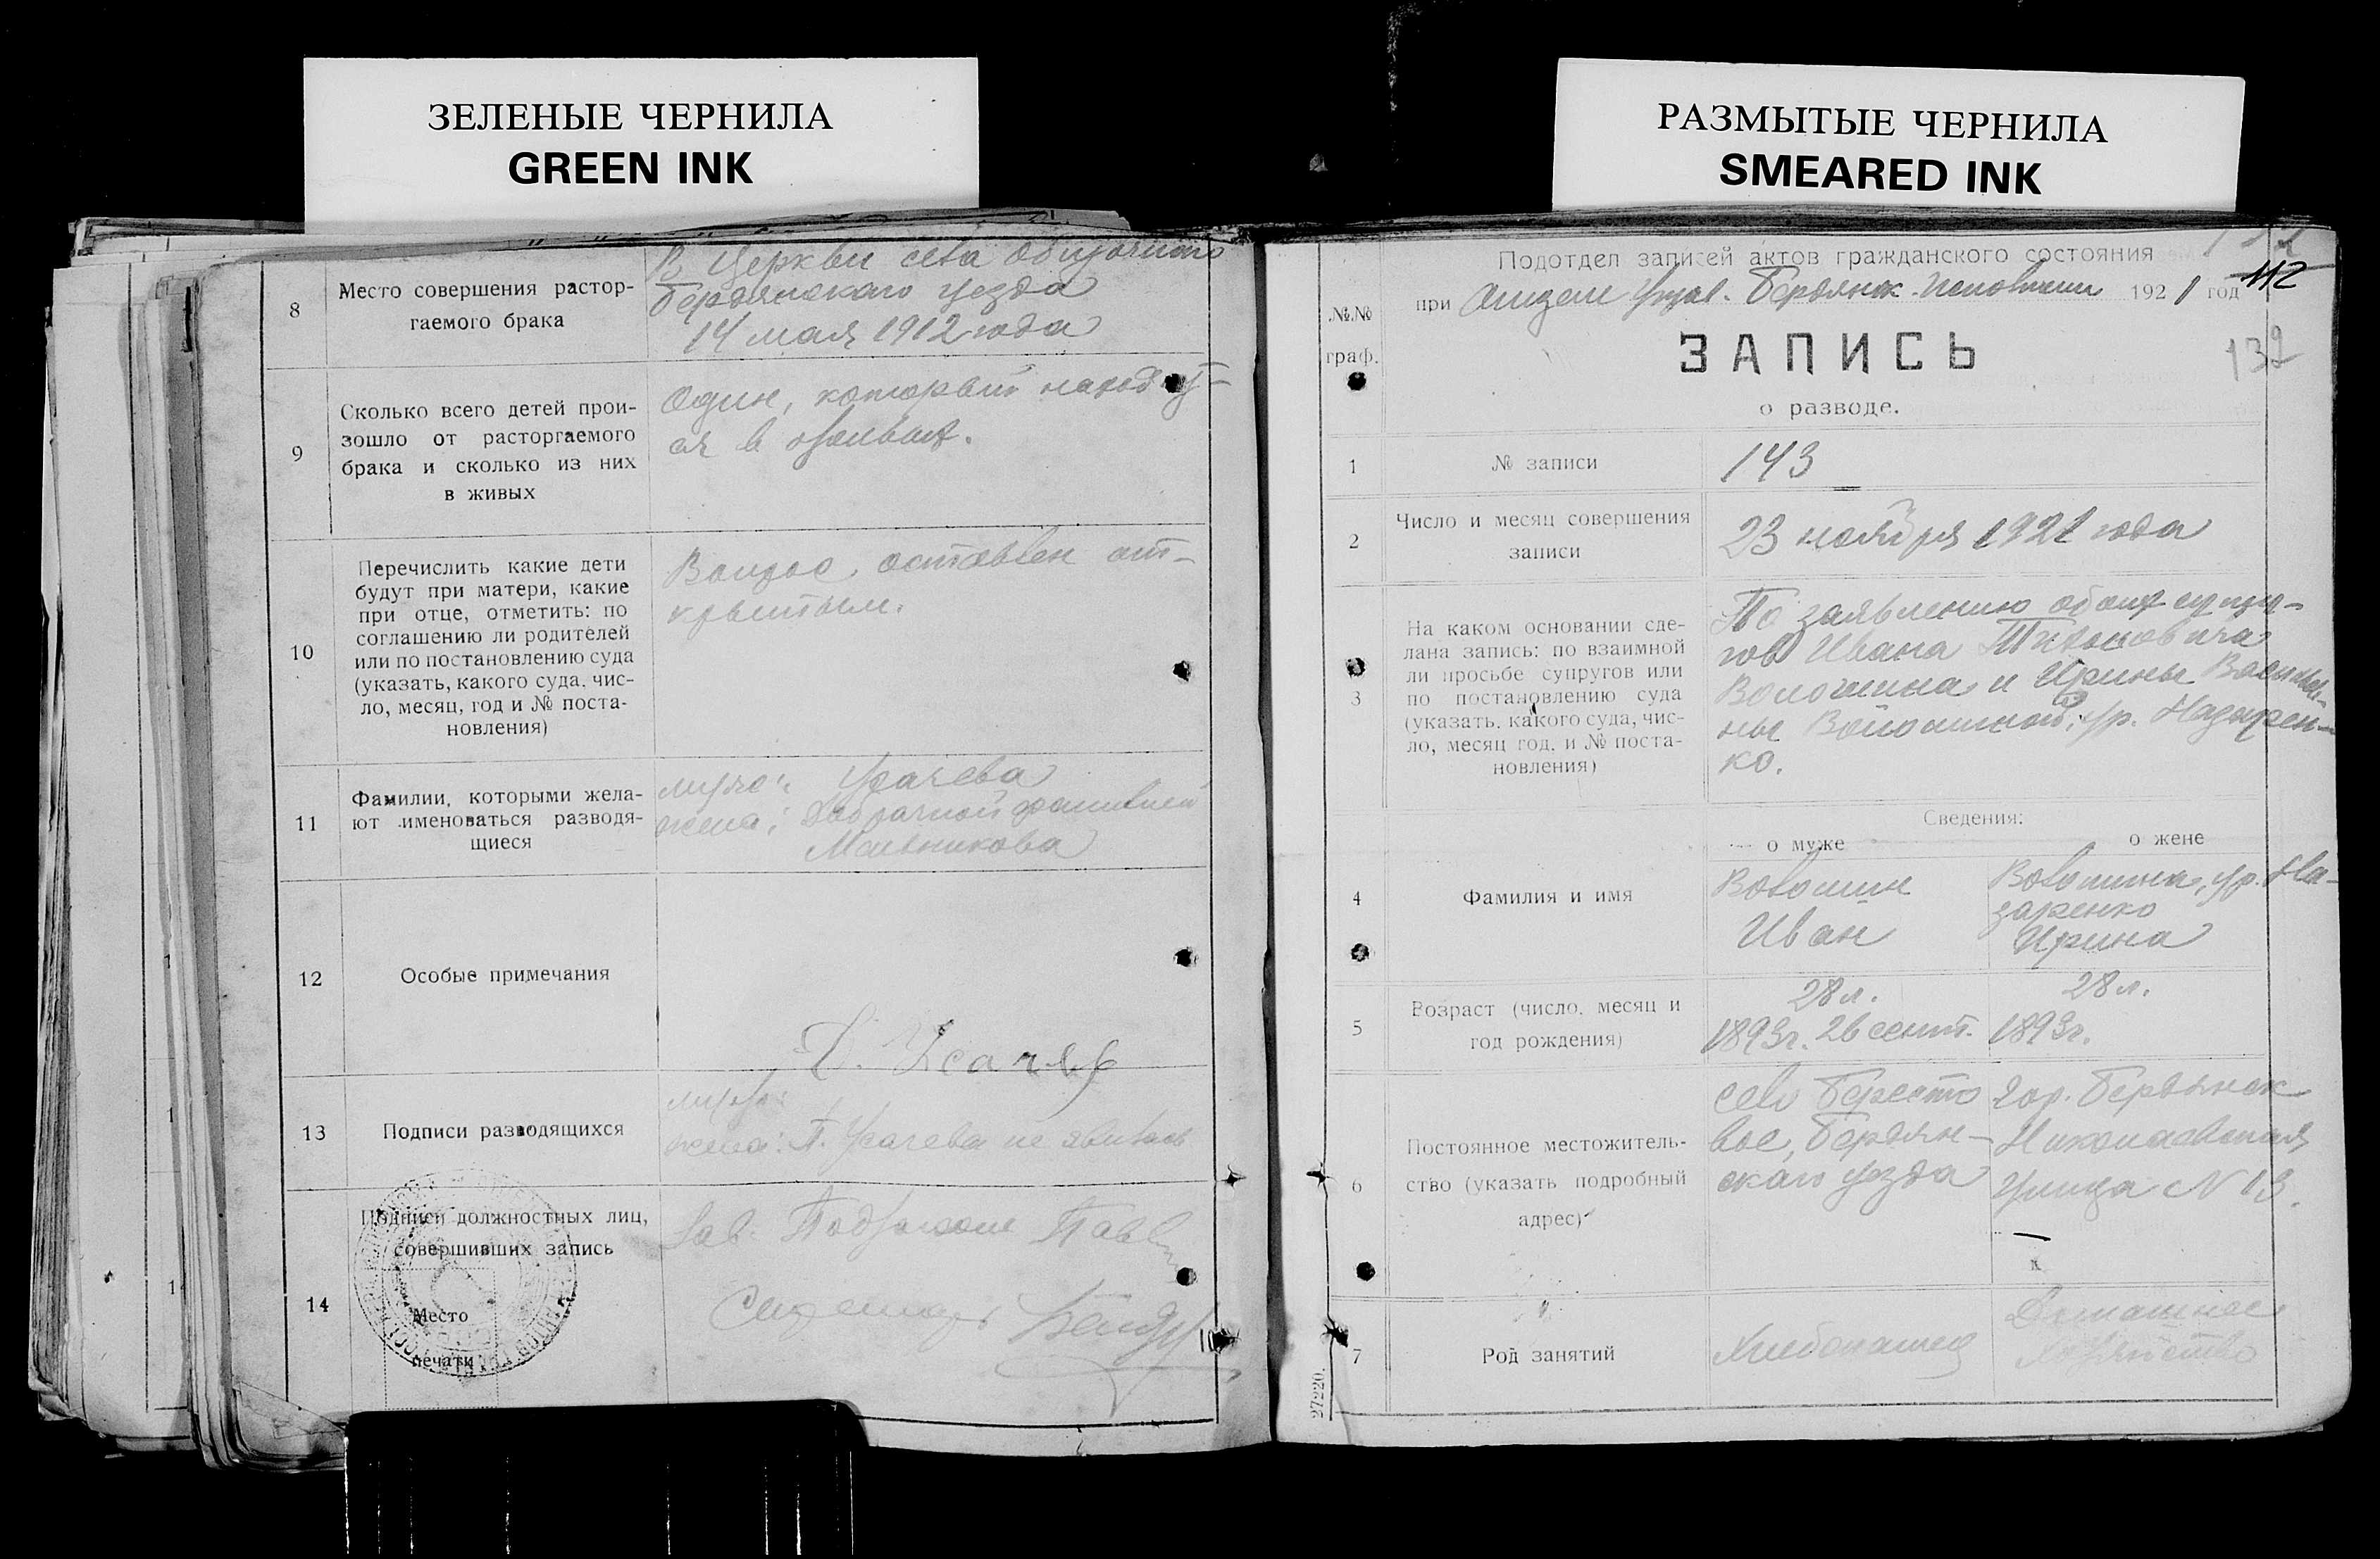 ЗЕЛЕНЫЕ ЧЕРНИЛА
GREEN INK
8
Место совершения растор-
гаемого брака
В Церкви села
Бердянскаго уезда
14 мая 1912 года
9
Сколько всего детей прои-
зошло от расторгаемого
брака и сколько из них
в живых
Один, который находит-
ся в живых.
10
Перечислить какие дети
будут при матери, какие
при отце, отметить: по
соглашению ли родителей
или по постановлению суда
(указать, какого суда, чис-
ло, месяц, год и № поста-
новления)
Вопрос оставлен от-
крытым.
11
Фамилии, которыми жела-
ют именоваться разводя-
щиеся
мужа: Усачева
жена: Добрачной фамилией
Мельникова
12
Особые примечания
13
Подписи разводящихся
Усачев
мужа:
жена: П. Усачева не явилась
14
Подписи должностных лиц,
совершивших запись
Место
печати
Зав. Подотделом
Секретарь
РАЗМЫТЫЕ ЧЕРНИЛА
SMEARED INK
112
132
Подотдел записей актов гражданского состояния
при Отделе Управ. Бердянск. Исполкома 1921 год
№№
граф.
ЗАПИСЬ
о разводе.
1
№ записи
143
2
Число и месяц совершения
записи
23 ноября 1921 года
3
На каком основании сде-
лана запись: по взаимной
ли просьбе супругов или
по постановлению суда
(указать, какого суда, чис-
ло, месяц год, и № поста-
новления)
По заявлению обоих супру-
гов Ивана Тихоновича
Волошина и Ирины Василье-
ны Волошиной, ур. Назарен-
ко.
Сведения:
о муже
о жене
4
Фамилия и имя
Волошин
Иван
Волошина, ур. На-
заренко
Ирина
5
Возраст (число, месяц и
год рождения)
28 л.
1893г. 26 сент.
28 л.
1893г.
6
Постоянное местожитель-
ство (указать подробный
адрес)
село Бересто
вое, Бердян-
скаго уезда
гор. Бердянск
Николаевская
улица N 13.
7
Род занятий
Хлебопашец
Домашнее
хозяйство
27220.